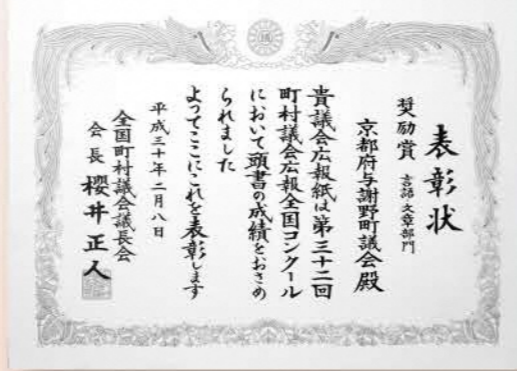 表彰状
奨励賞 言語・文章部門
京都府与謝野町議会殿
貴議会広報紙は第三十二回
町村議会広報全国コンクール
において頭書の成績をおさめ
られました
よってここにこれを表彰します
平成三十年二月八日
全国町村議会議長会
会長 櫻井正人